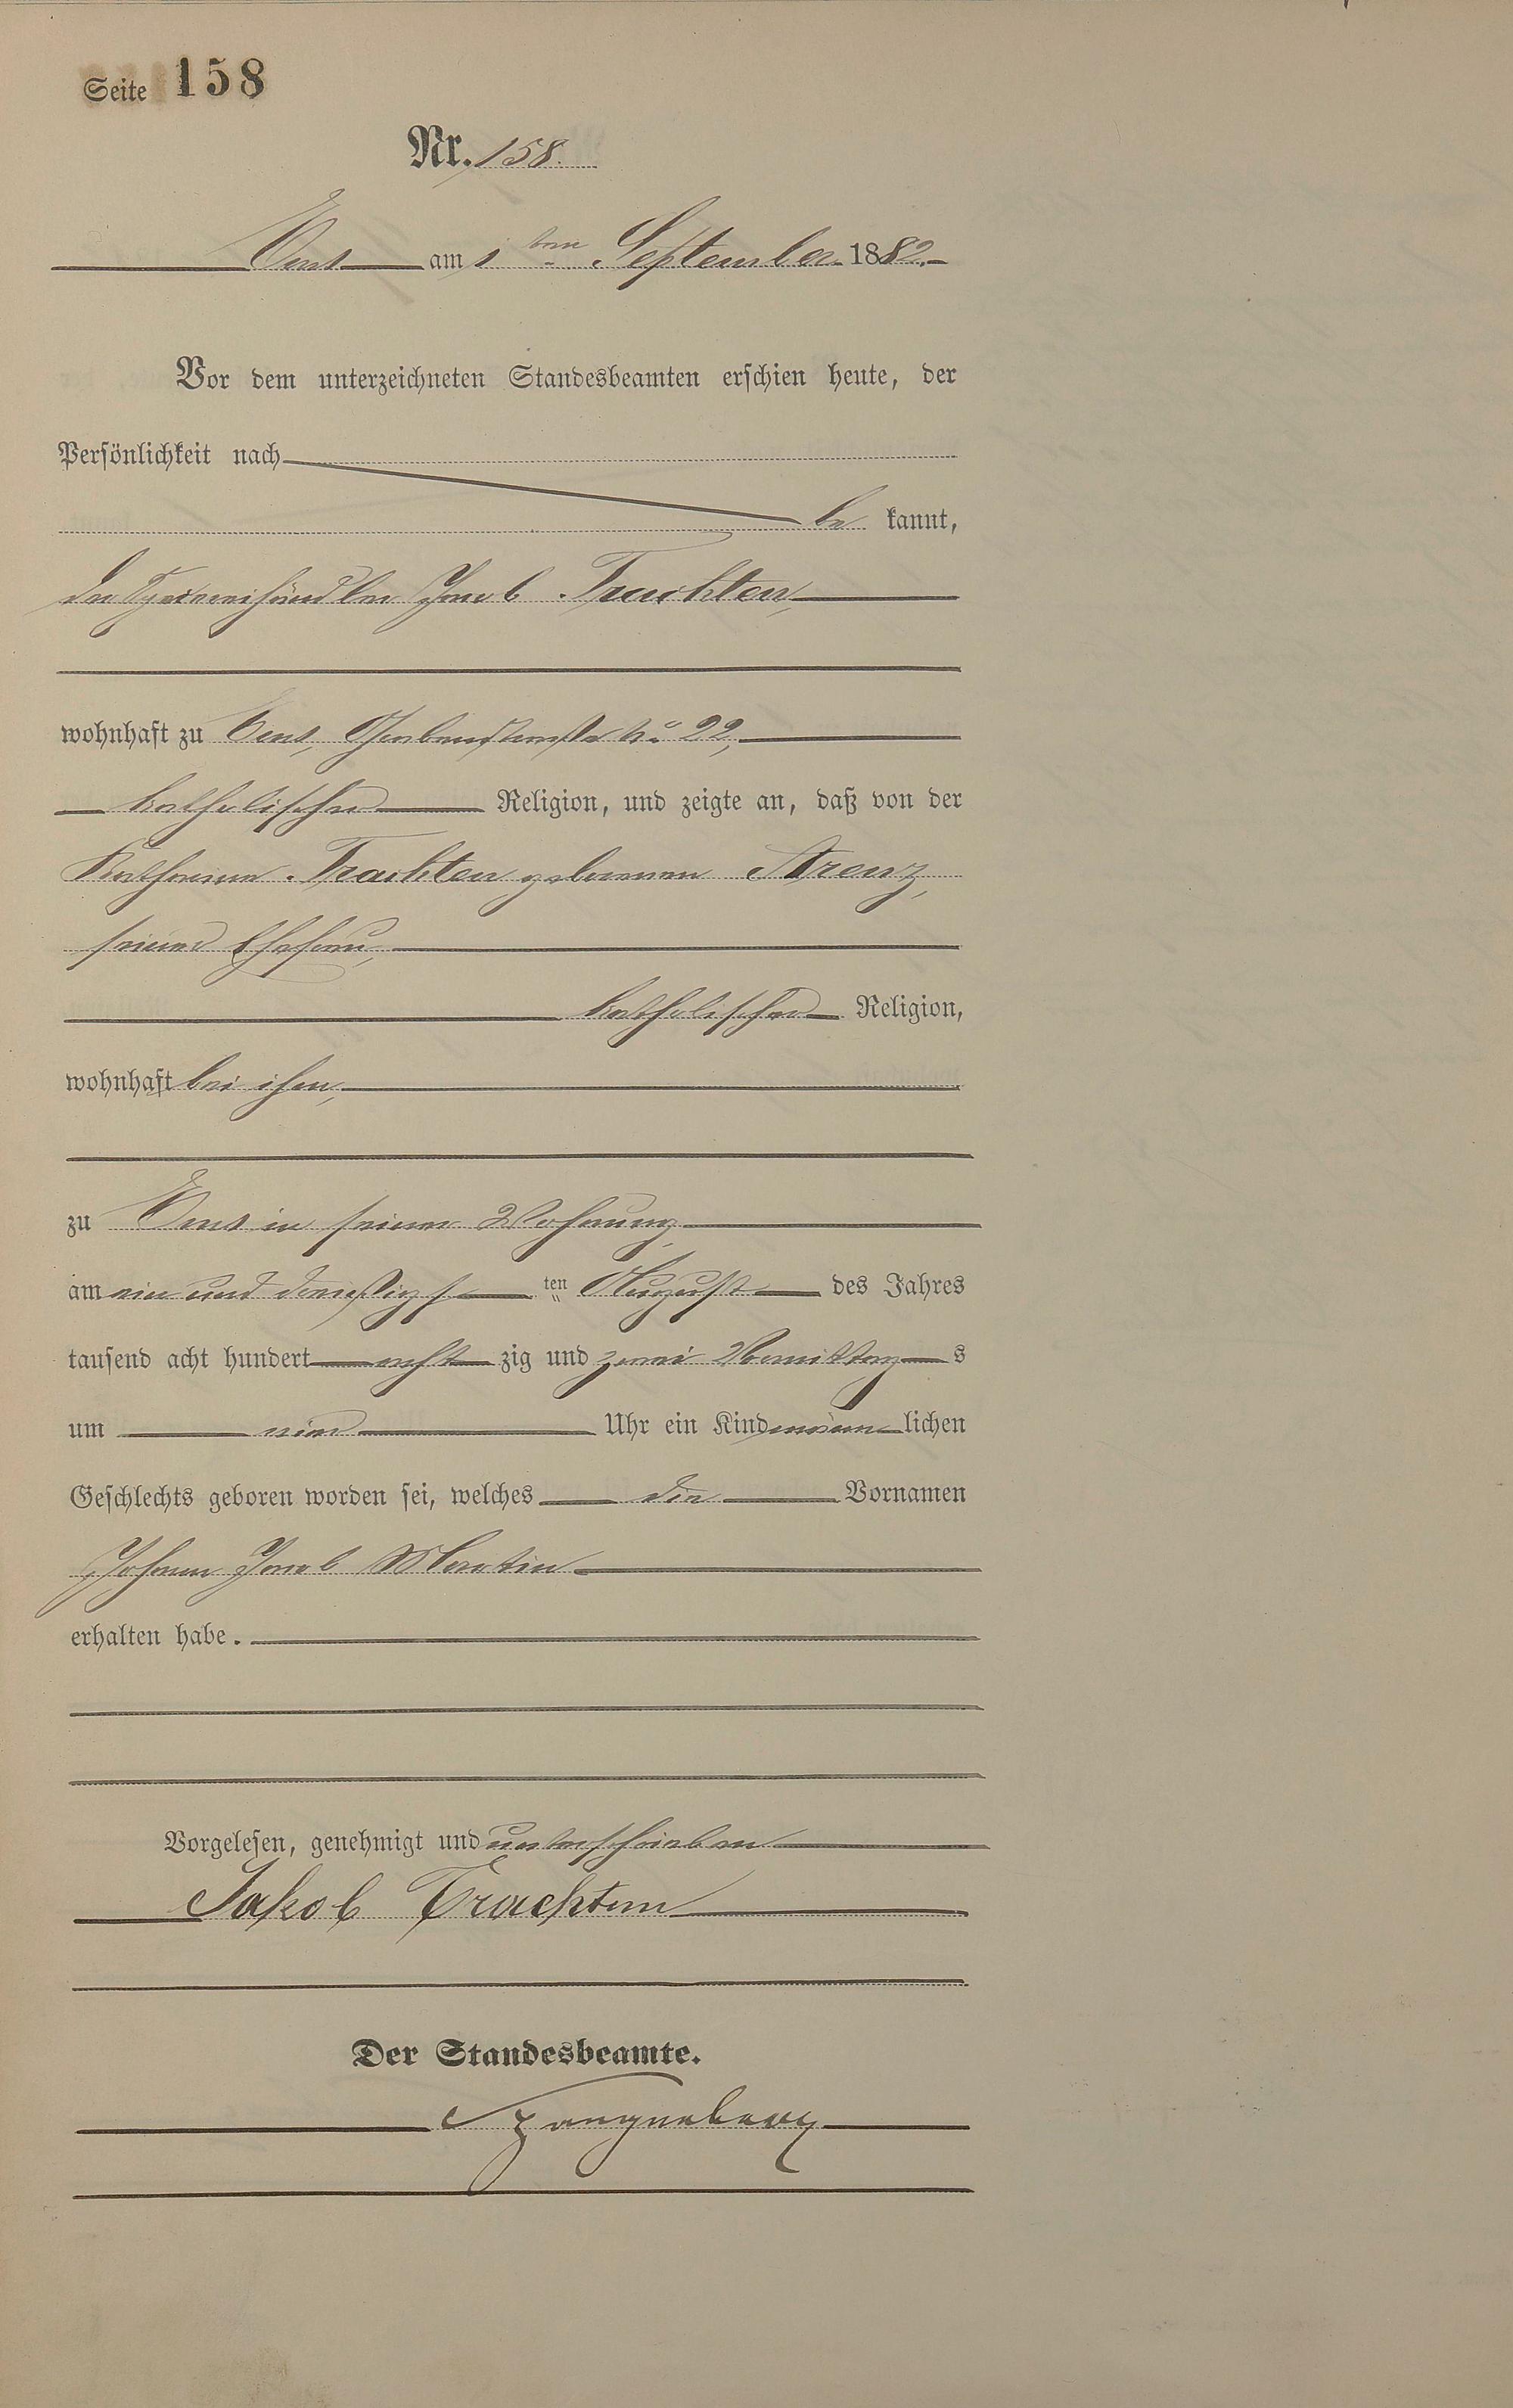 Seite 158
Nr. 158.
Ems am 1ten September 1882.
Vor dem unterzeichneten Standesbeamten erschien heute, der
Persönlichkeit nach
be kannt,
der Jacob Trachten,
wohnhaft zu Ems, No 22,
katholischer Religion, und zeigte an, daß von der
Katharina Trachten geborenen Arenz,
seiner Ehefrau,
katholischer Religion,
wohnhaft bei ihm,
zu Ems in seiner Wohnung,
am ein und dreißigsten August des Jahres
tausend acht hundert acht zig und zwei Vormittags
um Uhr ein Kind männlichen
Geschlechts geboren worden sei, welches die Vornamen
Johann Jacob Martin
erhalten habe.
Vorgelesen, genehmigt und unterschrieben
Jakob Trachten
Der Standesbeamte.
Spangenberg